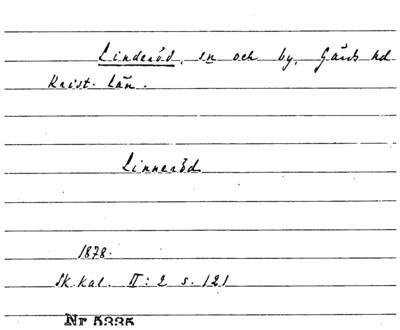 Linderöd, sn och by, Gärds hd
Krist. län.
Linneröd
1878.
Sk. kal. II: 2 s. 121
Nr 5335